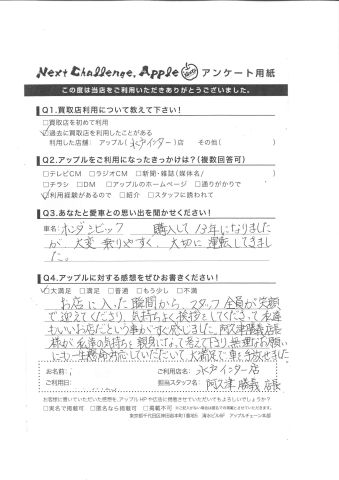 Next Challenge. Apple アンケート用紙
この度は当店をご利用いただきありがとうございました。
Q1.買取店利用について教えて下さい!
□買取店を初めて利用
☑過去に買取店を利用したことがある
利用した店舗: アップル(水戸インター)店 その他( )
Q2.アップルをご利用になったきっかけは?(複数回答可)
□テレビCM □ラジオCM □新聞・雑誌(媒体名/ )
□チラシ □DM □アップルのホームページ □通りがかりで
☑利用経験があるので □紹介 □スタッフに誘われて
Q3.あなたと愛車との思い出を聞かせください!
車名:ホンダシビック 購入して13年になりました
が、大変乗りやすく、大切に運転してきまし
た。
Q4.アップルに対する感想をぜひお書きください!
☑大満足 □満足 □普通 □もう少し □不満
お店に入った瞬間から、スタッフ全員が笑顔
で迎えてくださり、気持ちよく挨拶をしてくださって、本当に
もいいお店だという事が良く感じました。阿久津勝義店長
様が私達の気持ちを親身になって考えて下さり、無理なお願い
にも一生懸命対応していただいて、大満足で車を手放せました
お名前: ご利用店名: 水戸インター店
ご利用日: 担当スタッフ名: 阿久津勝義店長
お客様に書いていただいた感想を、アップルHPや広告に掲載させていただいてもよろしいでしょうか?
□実名で掲載可 □匿名なら掲載可 □掲載不可 ※ご記入がない場合は匿名での掲載とさせていただきます。
東京都千代田区神田岩本町1番地 清水ビル6F アップルチェーン本部